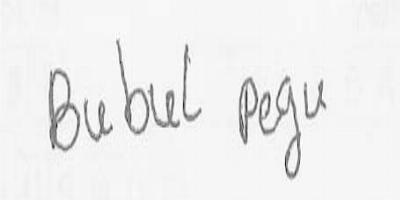 Bubul Pegu